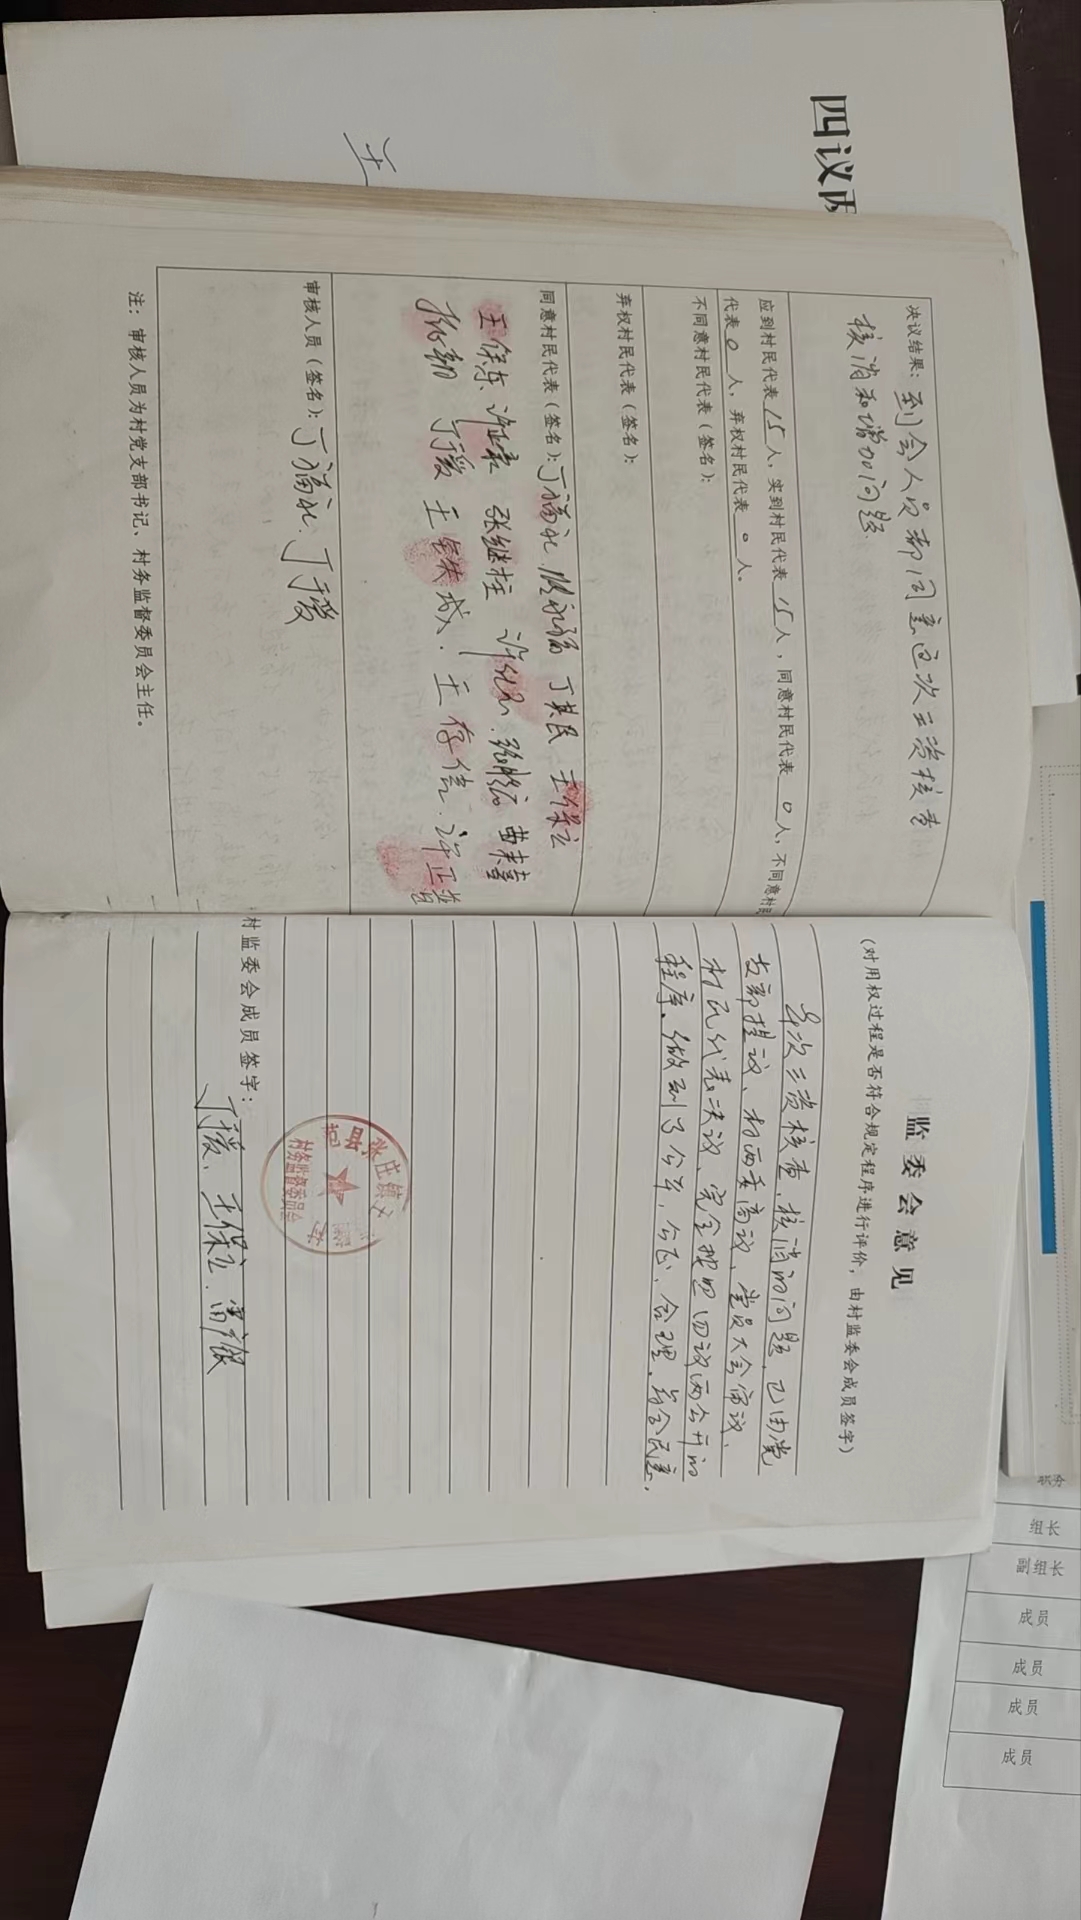 四议两
王
决议结果：到会人员都同意这次三资核查
核消和增加问题
应到村民代表15人，实到村民代表15人，同意村民代表0人，不同意村民
代表0人，弃权村民代表0人。
不同意村民代表（签名）：
弃权村民代表（签名）：
同意村民代表（签名）：丁福礼 永福 丁其民 王保立
王保东 许 张继柱 许 曲来喜
丁援 王铁成 王存信 许正
审核人员（签名）：丁福礼、丁援
注：审核人员为村党支部书记、村务监督委员会主任。
监委会意见
（对用权过程是否符合规定程序进行评价，由村监委会成员签字）
次三资核查、核消的问题、已由党
支部提议、村两委商议、党员大会审议、
村民代表决议、完全按照四议两公开的
程序、做到了公平、公正、合理、符合民意。
县张庄镇
村务监督委员会
村监委会成员签字：
丁援、王保立、雷银
职务
组长
副组长
成员
成员
成员
成员